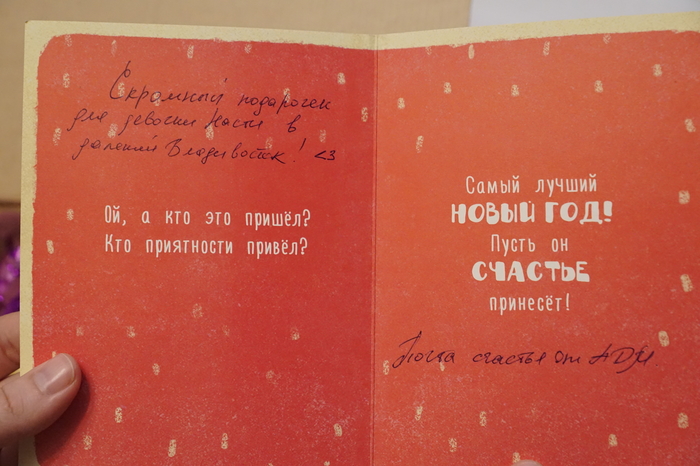 Скромный подарочек
для девочки Насти в
далёкий Владивосток! <3
Ой, а кто это пришёл?
Кто приятности привёл?
Самый лучший
НОВЫЙ ГОД!
Пусть он
СЧАСТЬЕ
принесёт!
Почта счастья от АДМ